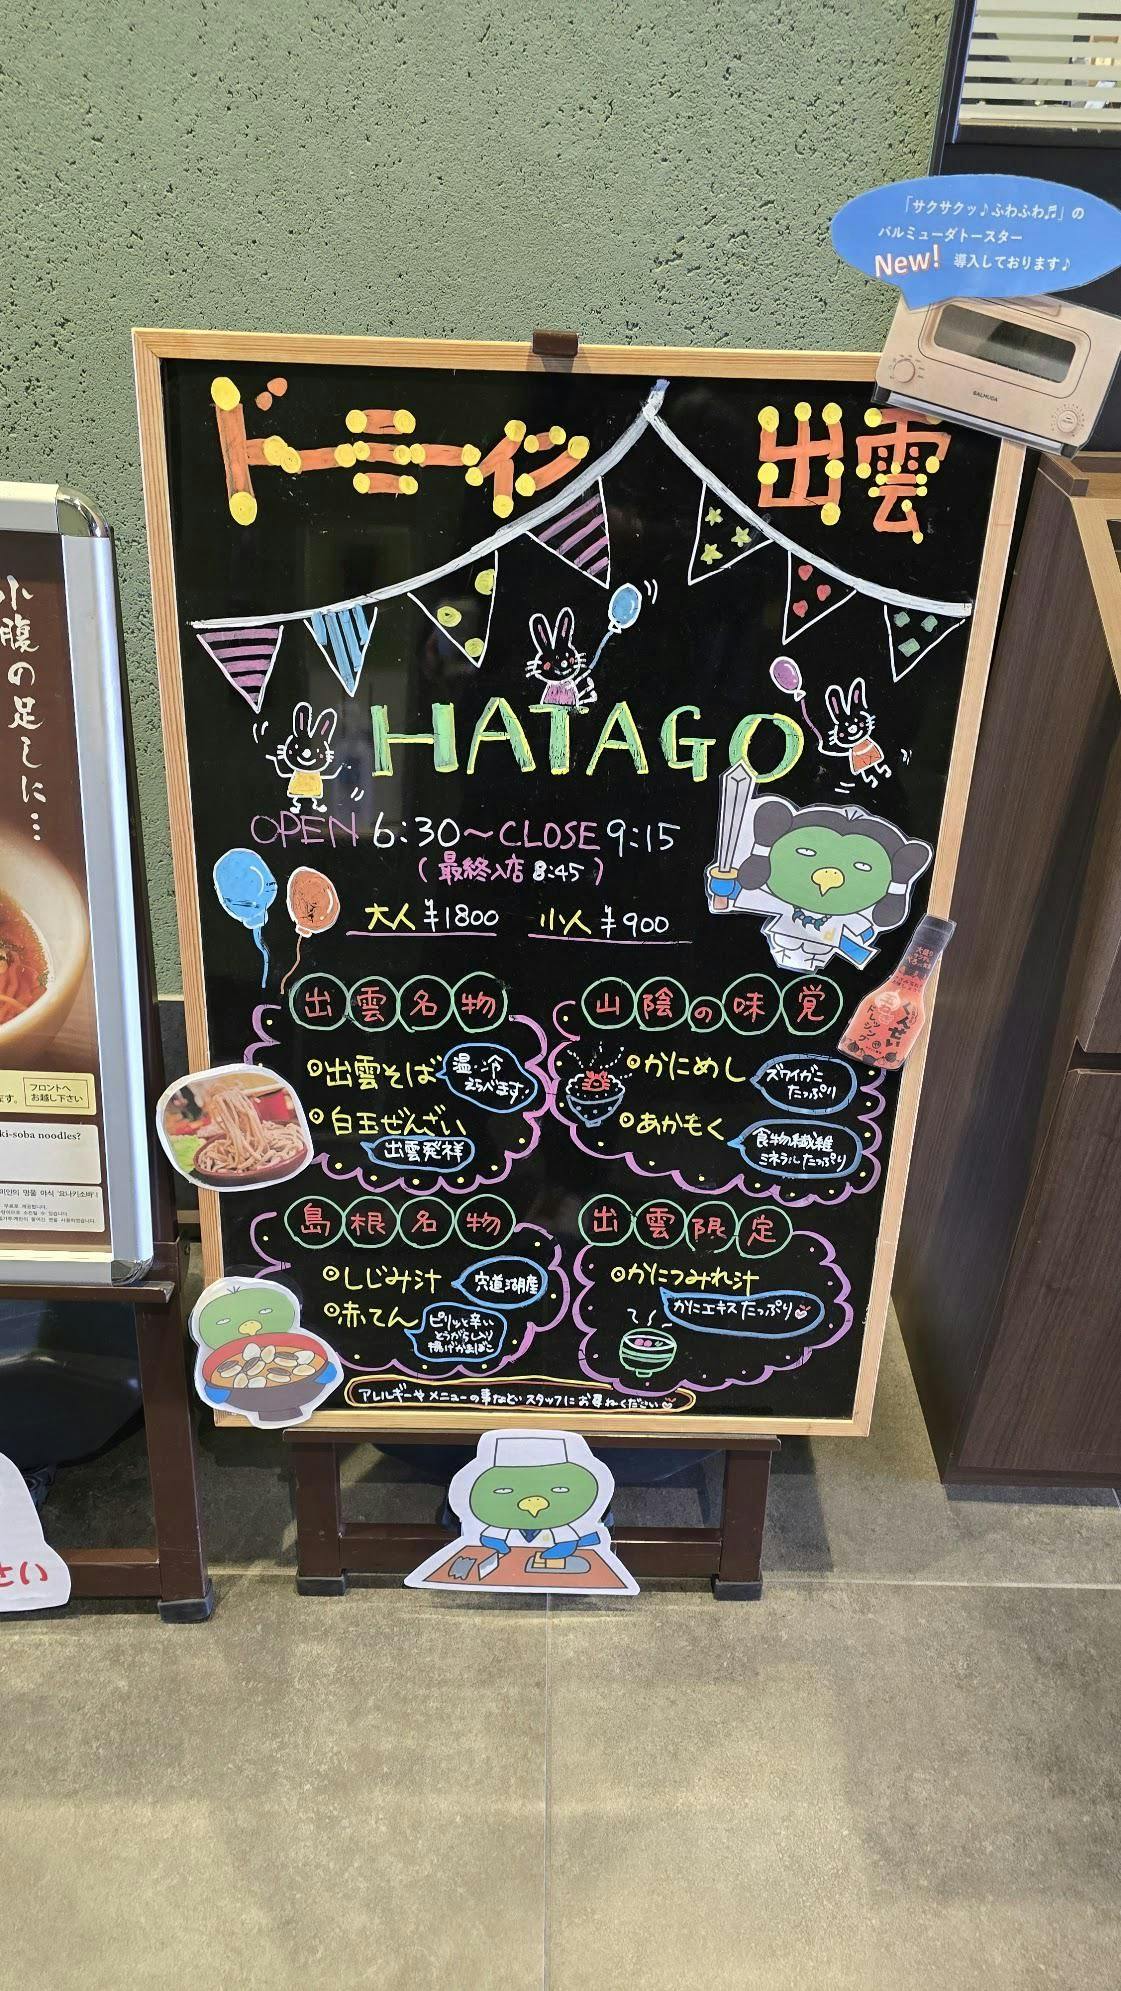 「サクサクッ♪ふわふわ♬」の
バルミューダトースター
New! 導入しております♪
BALMUDA
ドーミーイン 出雲
HATAGO
OPEN 6:30～CLOSE 9:15
(最終入店 8:45)
大人 ¥1800 小人 ¥900
出雲名物
出雲そば
温・冷
えらべます!
白玉ぜんざい
出雲発祥
山陰の味覚
かにめし
ズワイガニ
たっぷり
あかもく
食物繊維
ミネラルたっぷり
島根名物
しじみ汁
宍道湖産
赤てん
ピリッと辛い
とうがらし入り
揚げかまぼこ
出雲限定
かにつみれ汁
かにエキスたっぷり
アレルギーやメニューの事など スタッフにお尋ねください
くんせい
ドレッシング
小腹の足しに…
フロントへ
お越し下さい
ki-soba noodles?
さい